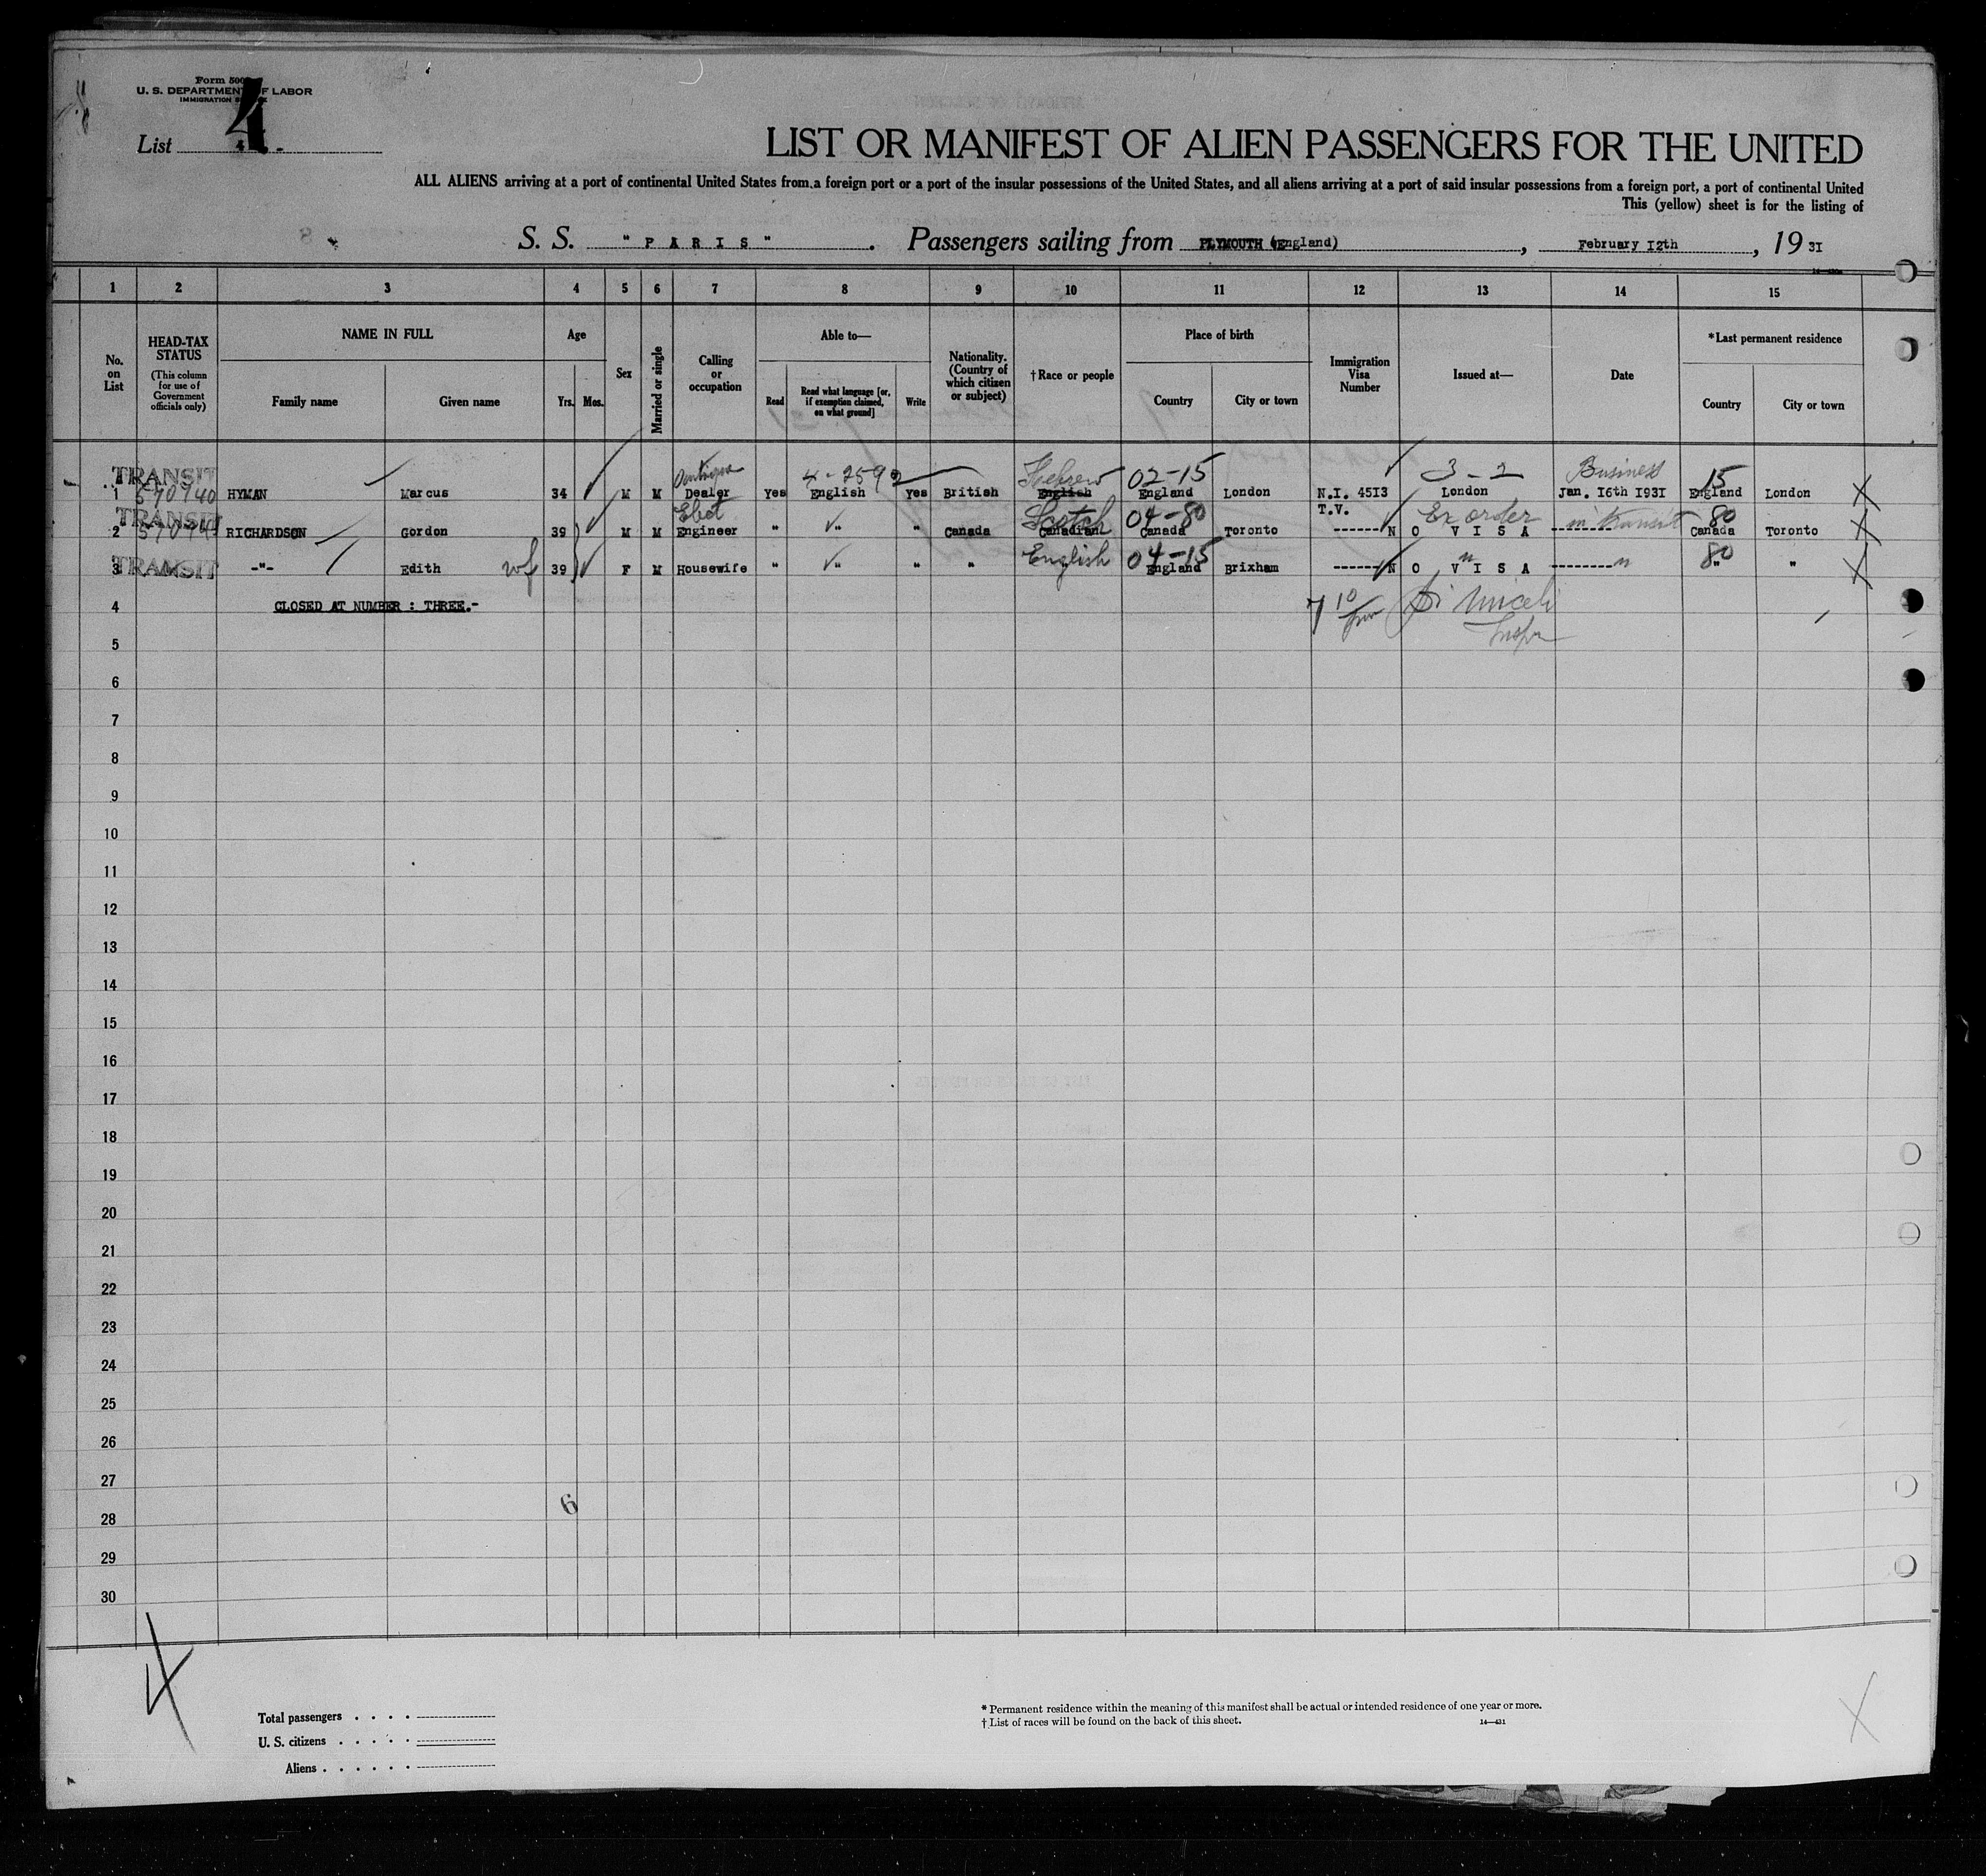 Form 500
U. S. DEPARTMENT OF LABOR
IMMIGRATION
4
List 4 -
LIST OR MANIFEST OF ALIEN PASSENGERS FOR THE UNITED
ALL ALIENS arriving at a port of continental United States from a foreign port or a port of the insular possessions of the United States, and all aliens arriving at a port of said insular possessions from a foreign port, a port of continental United
This (yellow) sheet is for the listing of
S. S. "PARIS". Passengers sailing from PLYMOUTH (England), February 12th, 19 31
1 2 3 4 5 6 7 8 9 10 11 12 13 14 15
No. on List
HEAD-TAX STATUS (This column for use of Government officials only)
NAME IN FULL
Family name Given name
Age
Yrs. Mos.
Sex
Married or single
Calling or occupation
Able to—
Read Read what language [or, if exemption claimed, on what ground] Write
Nationality. (Country of which citizen or subject)
† Race or people
Place of birth
Country City or town
Immigration Visa Number
Issued at—
Date
*Last permanent residence
Country City or town
TRANSIT 4-2592 Hebrew 02-15 3-2 Business 15
1 570940 HYMAN Marcus 34 M M Dealer Yes English Yes British English England London N.I. 4513 London Jan. 16th 1931 England London
TRANSIT Elect Scotch 04-80 T.V. Ex order in transit 80
2 RICHARDSON Gordon 39 M M Engineer " " " Canada Canadian Canada Toronto ------N O V I S A -------- Canada Toronto
TRANSIT wf English 04-15 " " 80
3 -"- Edith 39 F M Housewife " " " " " England Brixham ------N O V I S A -------- " "
4 CLOSED AT NUMBER : THREE.-
7 10 pm
Inspr
5
6
7
8
9
10
11
12
13
14
15
16
17
18
19
20
21
22
23
24
25
26
27
6
28
29
30
4
Total passengers . . . .
U. S. citizens . . . . .
Aliens . . . . . .
* Permanent residence within the meaning of this manifest shall be actual or intended residence of one year or more.
† List of races will be found on the back of this sheet. 14—431